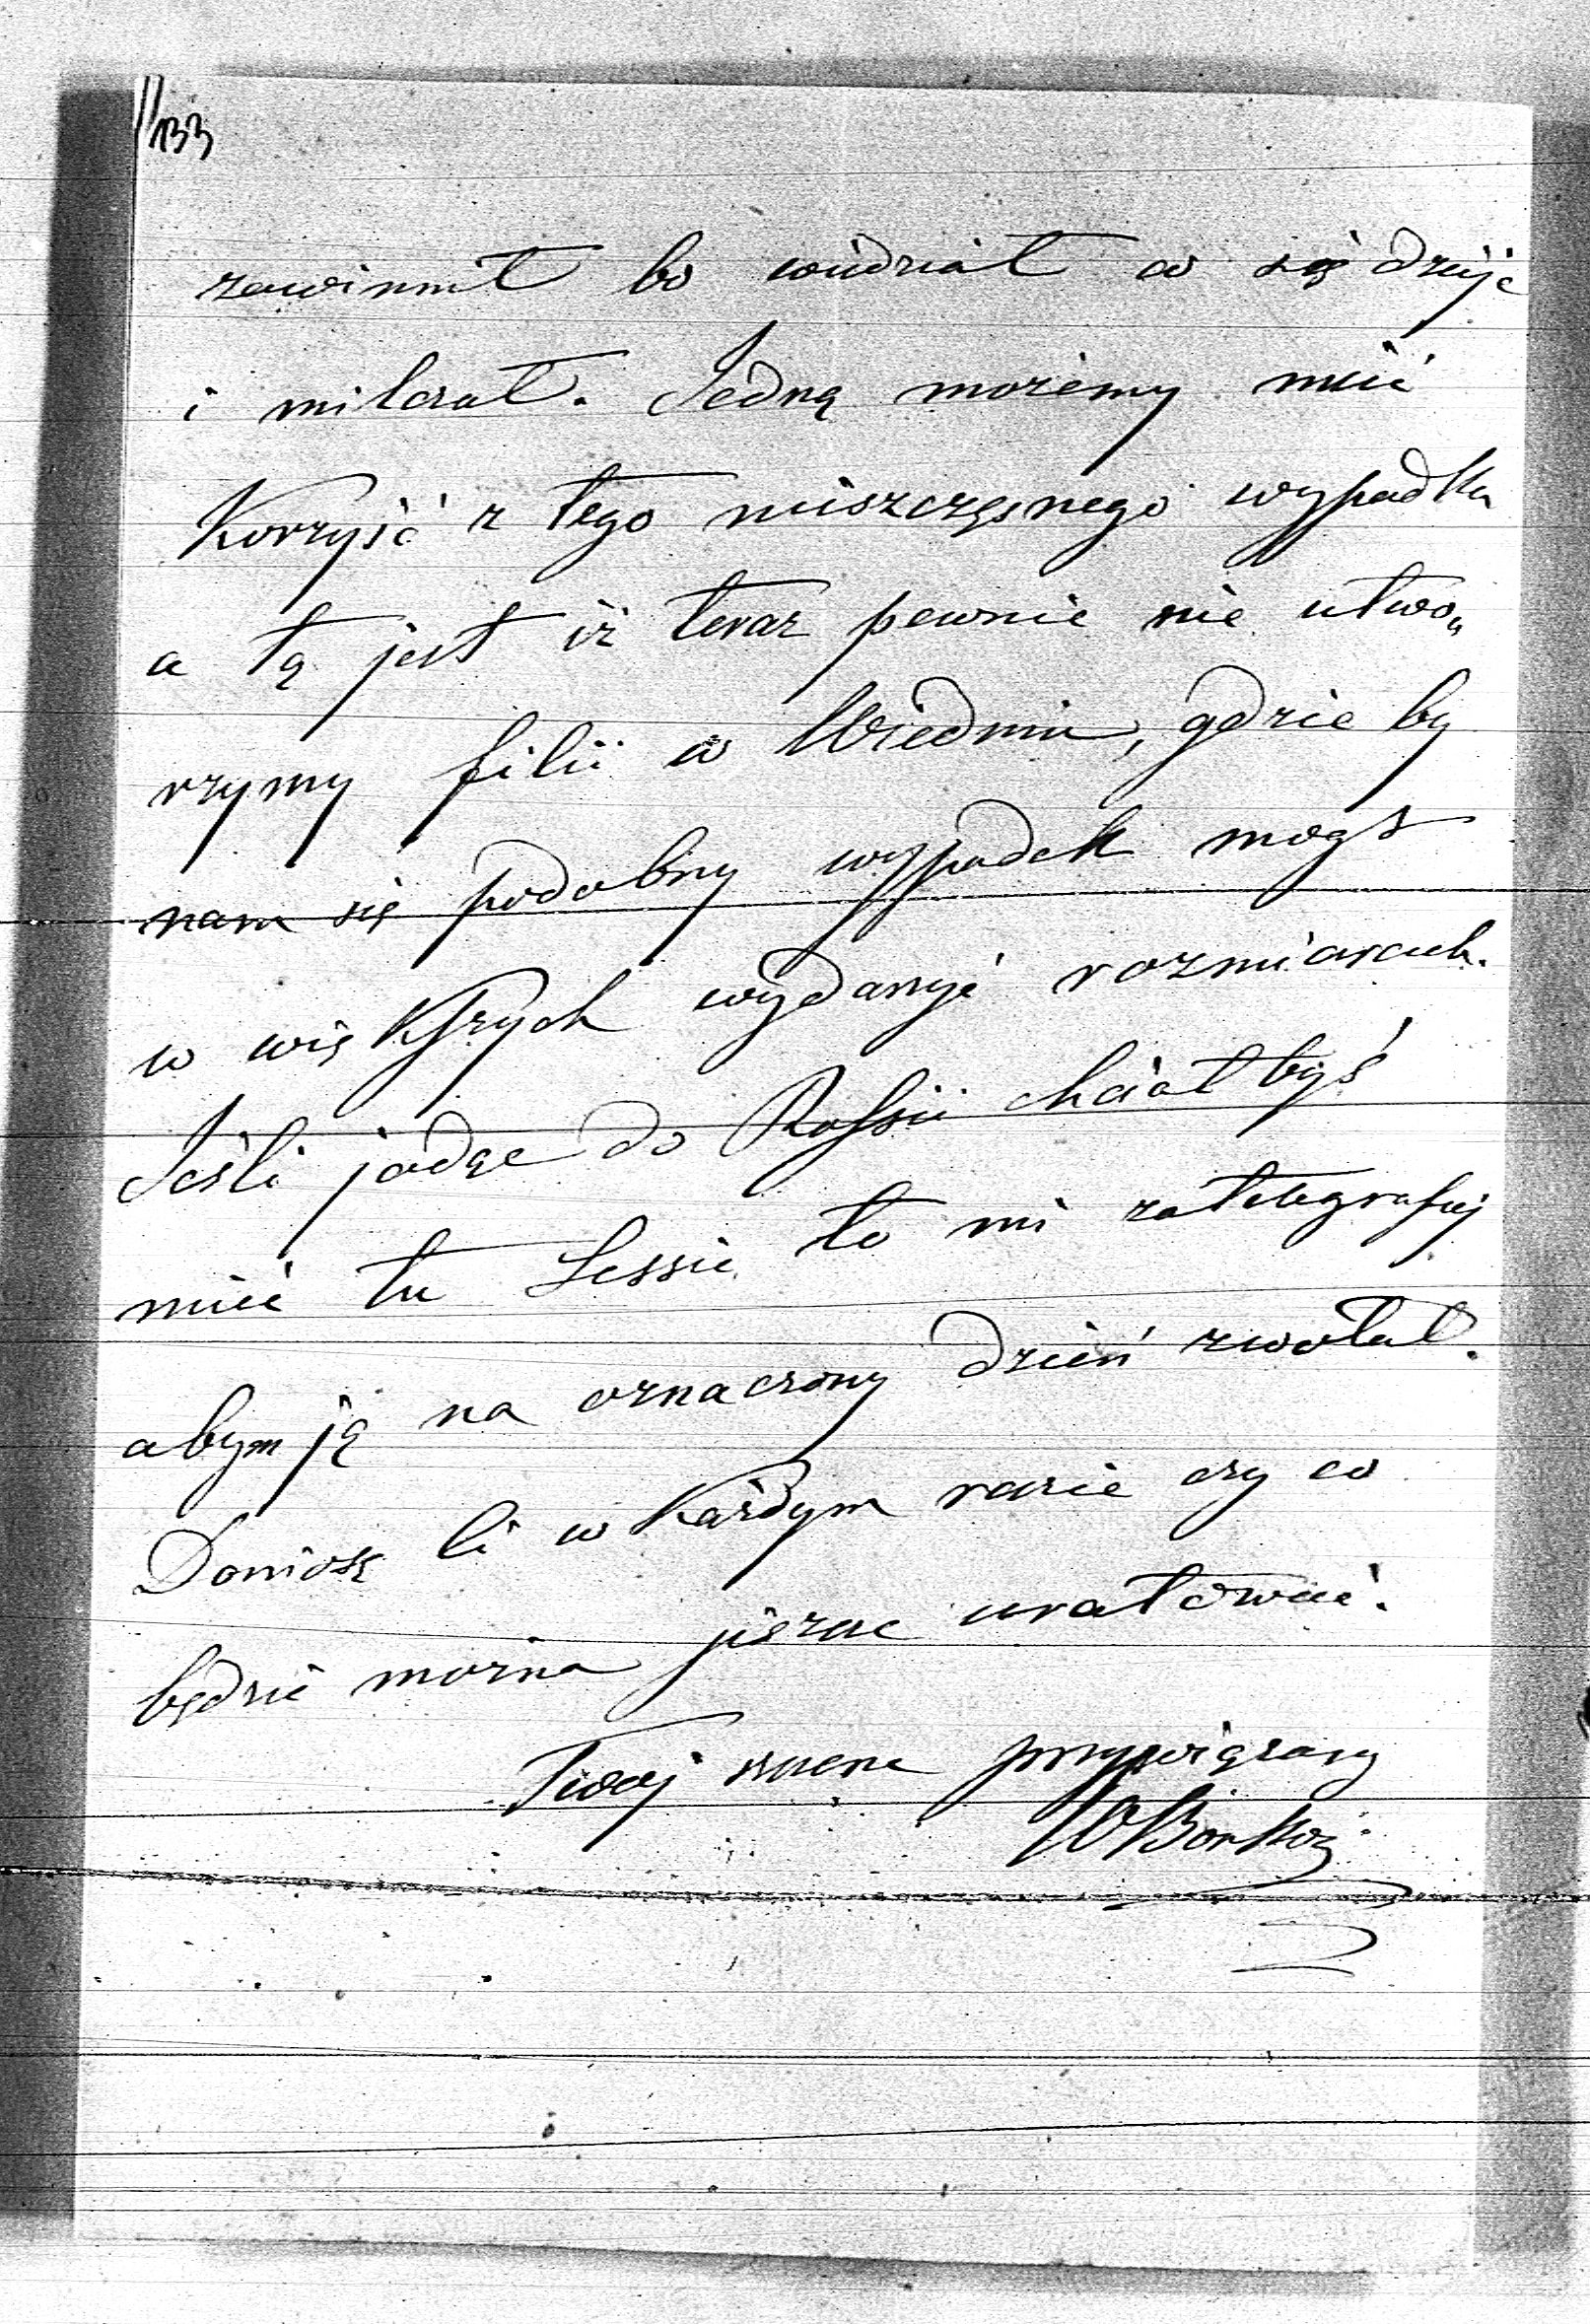 133
zawinnił bo widział co się dzieje
i milczał. Jedną możemy mieć
Korzyść z tego nieszczęsnego wypadku
a tą jest iż teraz pewnie nie utwo„
rzymy filii w Wiedniu, gdzie by
nam się podobny wypadek mógł
w większych wydarzyć rozmiarach.
Jeśli jadąc do Rossii chciałbyś
mieć tu Sessię to mi zatelegrafuj
abym ją na oznaczony dzień zwołał.
Doniosę Ci w Każdym razie czy co
będzie można jeszcze uratować.
Twój szczerze przywiązany
WBorkow